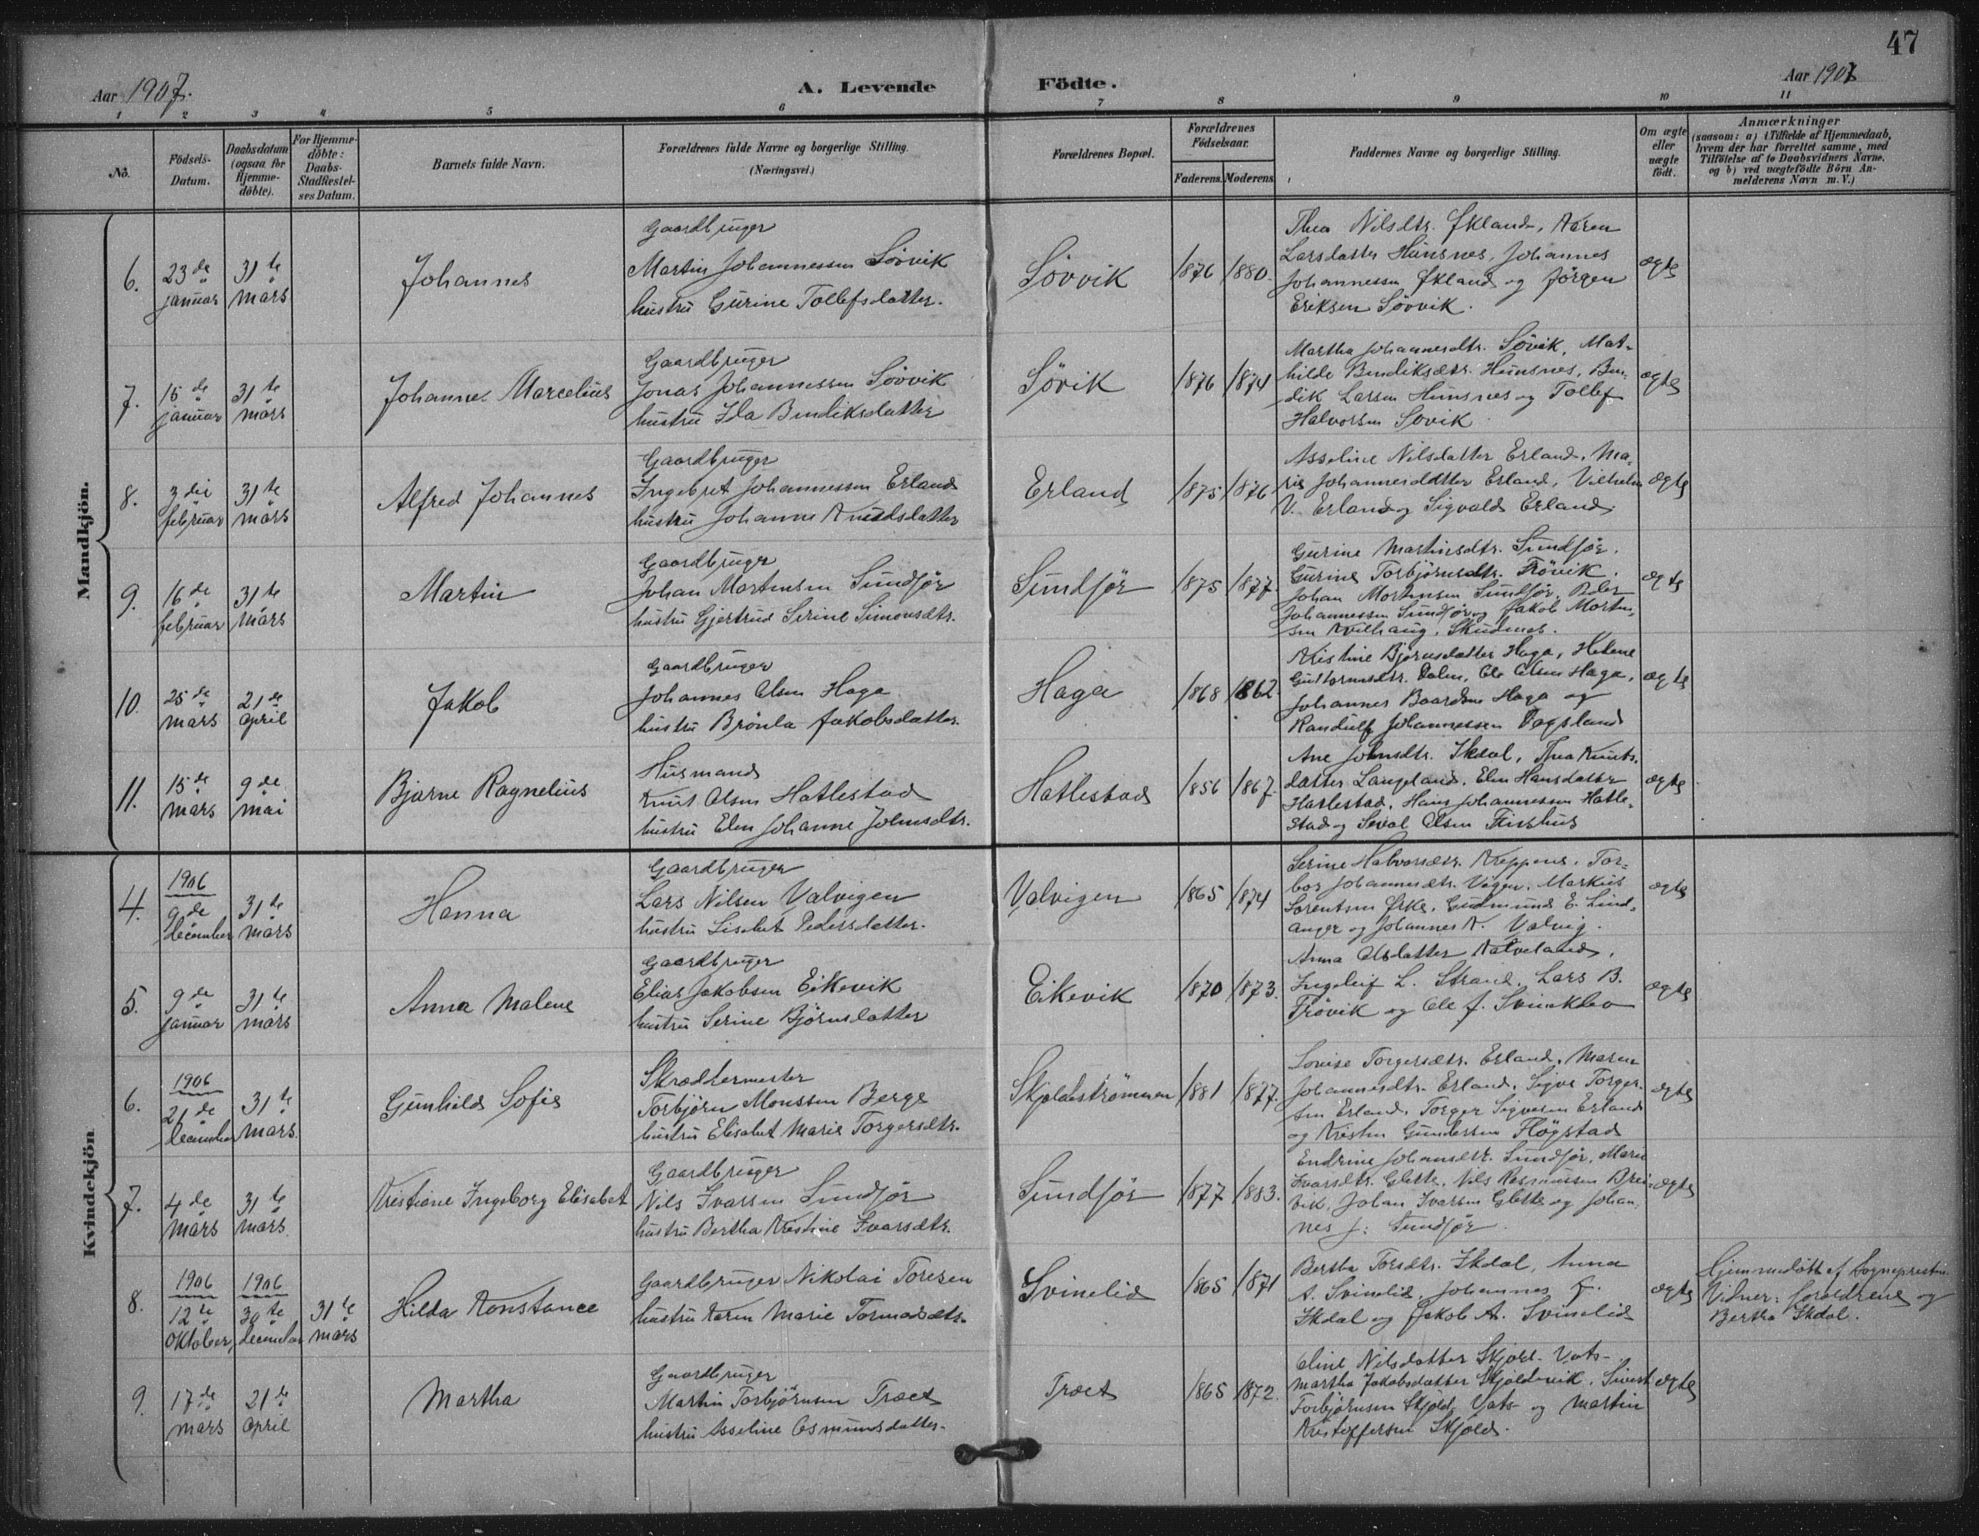 47
Aar 1907.
A. Levende
Födte.
Aar 1907
1 2 3 4 5 6 7 8 9 10 11
No.
Födsels-
Datum.
Daabsdatum
(ogsaa for
Hjemme-
döbte).
For Hjemme-
döbte:
Daabs-
Stadfestel-
ses Datum.
Barnets fulde Navn.
Forældrenes fulde Navne og borgerlige Stilling.
(Næringsvei.)
Forældrenes Bopæl.
Forældrenes
Födselsaar.
Faderens. Moderens.
Faddernes Navne og borgerlige Stilling.
Om ægte
eller
uægte
födt.
Anmærkninger
(saasom: a) i Tilfælde af Hjemmedaab,
hvem der har forrettet samme, med
Tilföielse af to Daabsvidners Navne,
og b) ved uægtefödte Börn An-
melderens Navn m. V.)
Mandkjön.
6.
23de
januar
31te
mars
Johannes
Gaardbruger
Martin Johannessen Sövvik
hustru Gurine Tollefsdatter.
Sövvik
1876 1880.
Thea Nilsdtr. Økland, Karen
Larsdatter Hunsnes, Johannes
Johannessen Økland og Jörgen
Eriksen Sövvik.
ægte
7.
15de
januar
31te
mars
Johannes Marcelius
Gaardbruger
Jonas Johannessen Sövvik
hustru Ida Bendiksdatter
Sövik
1876 1874
Martha Johannesdtr. Sövik, Mat-
hilde Bendiksdtr. Hunsnes, Ben-
dik Larsen Hunsnes og Tollef
Halvorsen Sövik
ægte
8.
3die
februar
31te
mars
Alfred Johannes
Gaardbruger
Ingebret Johannessen Erland
hustru Johanne Knudsdatter
Erland
1875 1876
Asseline Nilsdatter Erland, Ma-
rie Johannesdatter Erland, Vilhelm
V. Erland og Sigvald Erland.
ægte
9.
16de
februar
31te
mars
Martin
Gaardbruger
Johan Martensen Sundför
hustru Gjertrud Serine Simonsdtr.
Sundför
1875 1877.
Gurine Martinsdtr. Sundför.
Gurine Torbjörnsdtr. Frövik.
Johan Mortensen Sundför, Peder
Johannessen Sundför og Jakob Morten-
sen Kvilhaug, Skudenes.
ægte
10.
25de
mars
21de
april
Jakob
Gaardbruger
Johannes Olsen Haga
hustru Brönla Jakobsdatter.
Haga
1868 1862
Kristine Björnsdatter Haga, Helene
Guttormsdtr. Dalen, Ole Olsen Haga,
Johannes Baardsen Haga og
Randulf Johannessen Dagsland
ægte
11.
15de
mars
9de
mai
Bjarne Ragnelius
Husmand
Knut Olsen Hatlestad
hustru Elen Johanne Johnsdtr.
Hatlestad
1856 1867.
Ane Johnsdtr. Ikdal, Thea Knuts-
datter Langeland, Elen Hansdatter
Hatlestad, Hans Johannessen Hatle-
stad og Seval Olsen
ægte
Kvindekjön
4.
1906
9de
december
31te
mars
Hanna
Gaardbruger
Lars Nilsen Valvigen
hustru Lisebet Pedersdatter.
Valvigen
1865 1874
Serine Halvorsdtr. Kreppene, Tor-
bor Johannesdtr. Vågen, Markus
Sorentsen Ørke, Gudmund E. Lind-
anger og Johannes K. Valvig.
ægte
5.
9de
januar
31te
mars
Anna Malene
Gaardbruger
Elias Jakobsen Eikevik
hustru Serine Björnsdatter
Eikevik
1870 1873.
Anna Olsdatter Kalveland,
Ingeleif L. Strand, Lars B.
Frövik og Ole J. Svinklev
ægte
6.
1906
21de
december
31te
mars.
Gunhild Sofie
Skrædermester
Torbjörn Monssen Berge
hustru Elisabet Marie Torgersdtr.
Skjoldeströmmen
1881 1877.
Lovise Torgersdtr. Erland, Maren
Johannesdtr. Erland, Sigve Torger-
sen Erland, Torger Sigvesen Erland
og Kristen Gundersen Flögstad
ægte
7.
4de
Mars
31te
mars.
Kristiane Ingeborg Elisabet
Gaardbruger
Nils Ivarsen Sundför
hustru Bertha Kristine Ivarsdtr.
Sundför
1877 1883.
Endrine Johansdtr. Sundför, Maren
Ivarsdtr. Glette, Nils Rasmussen Brei-
vik, Johan Ivarsen Glette og Johan-
nes J. Sundför.
ægte
8.
1906
12te
Oktober,
1906
30te
december
31te
mars
Hilda Konstance
Gaardbruger Nikolai Toresen
hustru Karen Marie Tormodsdtr.
Svinelid
1865 1871
Bertha Torsdtr. Ikdal, Anna
A. Svinelid, Johannes
Ikdal og Jakob A. Svinelid
ægte
Hjemmedöbt af Sognepresten
Vidner: forældrene og
Bertha Ikdal.
9.
17de
mars
21de
april
Martha
Gaardbruger
Martin Torbjörnsen Træet
hustru Asseline Osmundsdatter.
Træet
1865 1872.
Oline Nilsdatter Skjold. Vats-
Martha Jakobsdatter Skjoldevik, Sivert
Torbjörnsen Skjold, Vats- og Martin
Kristoffersen Skjold.
ægte